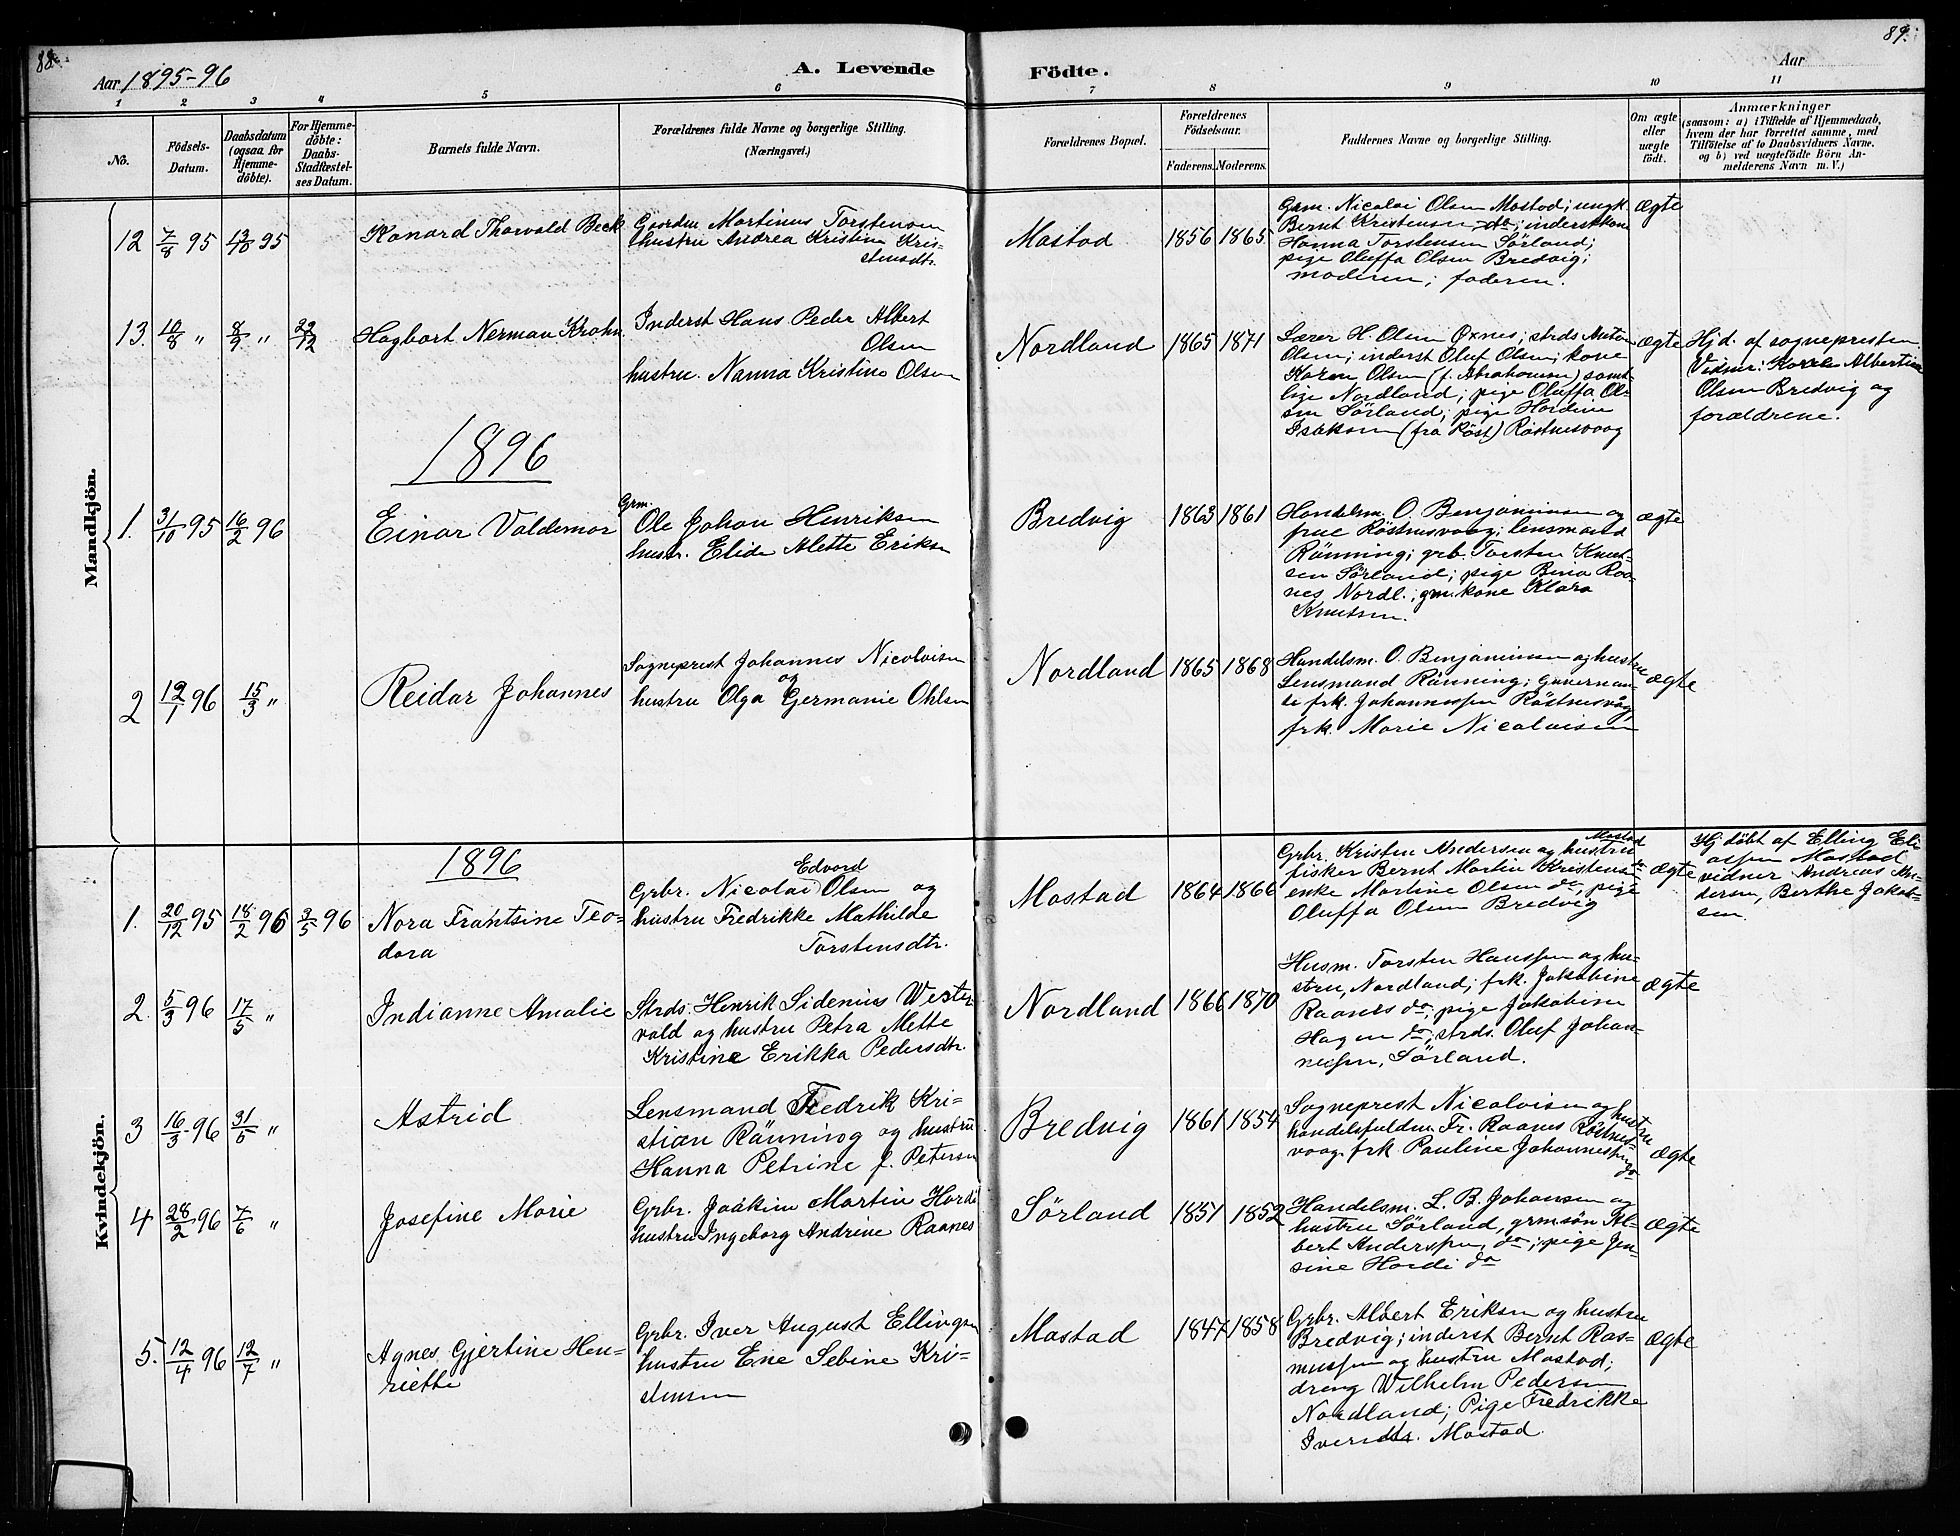 88.
89.
Aar 1895-96
A. Levende
Födte.
Aar
1 2 3 4 5 6 7 8 9 10 11
No.
Födsels-
Datum.
Daabsdatum
(ogsaa for
Hjemme-
döbte).
For Hjemme-
döbte:
Daabs-
Stadfæstel-
ses Datum.
Barnets fulde Navn.
Forældrenes fulde Navne og borgerlige Stilling.
(Næringsvei.)
Forældrenes Bopæl.
Forældrenes
Födselsaar.
Faderens. Moderens.
Faddernes Navne og borgerlige Stilling.
Om ægte
eller
uægte
födt.
Anmærkninger
(saasom: a) i Tilfælde af Hjemmedaab,
hvem der har forrettet samme, med
Tilföielse af to Daabsvidners Navne,
og b) ved uægtefödte Börn An-
melderens Navn m. V.)
Mandkjön.
12 7/8 95 13/10 95
Konard Thorvald Beck
Gaarden Martinus Torstensen
hustru Andrea Kristina Kris-
tensdtr.
Mostad
1856 1865
Grm. Nicolai Olsen Mostad; ungk.
Bernt Kristensen, do; inderstkone
Hanna Torstensen Sörland;
pige Oluffa Olsen Bredvig;
moderen; faderen.
ægte
13. 10/8 " 8/9 " 22/12
Hagbart Nerman Krohn
Inderst Hans Peder Albert
Olsen
hustru. Nanna Kristine Olsen
Nordland
1865 1871
Lærer H. Olsen Øxnes; strds Anton
Olsen; inderst Oluf Olsen; kone
Karen Olsen (f. Abrahamsen) samt-
lige Nordland; pige Oluffa Ol-
sen Sörland; pige Hardine
Isaksen (fra Röst) Röstnesvaag
ægte
Hjd. af sognepresten.
Vidner: Karele Albertine
Olsen Bredvig og
forældrene.
1896
1. 31/10 95 16/2 96
Einar Valdemar
Grm.
Ole Johan Henriksen
hustr. Elide Mette Eriksen
Bredvig
1863 1861
Handelsm. O. Benjaminsen og
frue Röstnesvaag; lensmand
Rönning; grb. Torsten Knut-
sen Sörland; pige Bina Raa-
nes Nordl.; gm.kone Klara
Knutsen.
ægte
2 12/1 96 15/3 "
Reidar Johannes
Sogneprest Johannes Nicolaisen
og
hustru Olga Germanie Ohlsen
Nordland
1865 1868
Handelsm. O. Benjaminsen og hustru
Lensmand Rönning; Guvernan-
te frk. Johannessen Röstnesvåg,
frk. Marie Nicolaisen
ægte
Kvindekjön.
1896
1. 20/12 95 18/2 96 3/5 96
Nora Frantsine Teo-
dora
Edvard
Grbr. Nicolai Olsen og
hustru Fredrikke Mathilde
Torstensdtr.
Mostad
1864 1866
Mostad
Grbr. Kristen Andersen og hustru
fisker Bernt Martin Kristensen do
enke Martine Olsen do, pige
Oluffa Olsen Bredvig
ægte
Hj döbt af Elling Eli-
assen Mostad
vidner Andreas An-
dersen, Berthe Jakob-
sen.
2. 5/3 96 17/5 "
Indianne Amalie
Strds. Henrik Sidenius Wester
vald og hustru Petra Mette
Kristine Erikka Pedersdtr.
Nordland
1866 1870
Husm. Torsten Hanssen og hu-
stru, Nordland; frk. Jakobine
Raanes do; pige Jakobine
Hagen do; strds. Oluf Johan-
nessen, Sörland.
ægte
3 16/3 96 31/5 "
Astrid
Lensmand Fredrik Kri-
stian Rönning og hustru
Hanna Petrine f. Petersen
Bredvig
1861 1854
Sogneprest Nicolaisen og hustru
handelsfuldm. Fr. Raanes Röstnes-
vaag, frk. Pauline Johannessen
do
ægte
4 28/2 96 7/6 "
Josefine Marie
Grbr. Joakim Martin Hardi
hustru Ingeborg Andrine Raanes
Sörland
1851 1852
Handelsm. L. B. Johansen og
hustru Sörland, grmsön Al-
bert Anderssen, do; pige Jen-
sine Hardi do
ægte
5. 12/4 96 12/7 "
Agnes Gjertine Hen-
riette
Grbr. Iver August Ellingsen
hustru Ene Sebine Kri-
stensen
Mostad
1847 1858
Grbr. Albert Eriksen og hustru
Bredvig; inderst Bernt Ras-
mussen og hustru Mostad;
dreng Wilhelm Pedersen
Nordland; Pige Fredrikke
Iversdtr. Mostad.
ægte